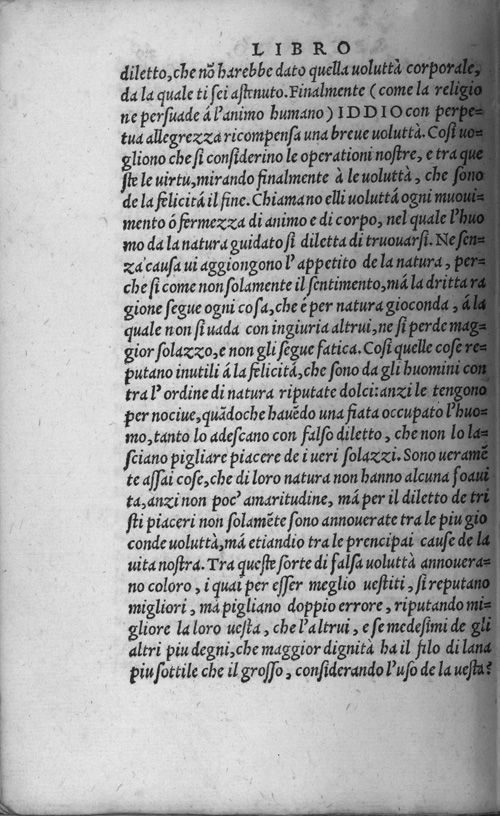 LIBRO
diletto, che nõ harebbe dato quella voluttà corporale,
da la quale ti sei astenuto. Finalmente (come la religio
ne persuade á l'animo humano) IDDIO con perpe=
tua allegrezza ricompensa una breue voluttà. Cosi uo=
gliono che si considerino le operationi nostre, e tra que
ste le virtu, mirando finalmente à le voluttà, che sono
de la felicitá il fine. Chiamano elli voluttá ogni muoui=
mento ó fermezza di animo e di corpo, nel quale l'huo
mo da la natura guidato si diletta di truouarsi. Ne sen=
za causa ui aggiongono l'appetito de la natura, per=
che si come non solamente il sentimento, má la dritta ra
gione segue ogni cosa, che é per natura gioconda, á la
quale non si uada con ingiuria altrui, ne si perde mag=
gior solazzo, e non gli segue fatica. Cosi quelle cose re=
putano inutili á la felicitá, che sono da gli huomini con
tra l'ordine di natura riputate dolci: anzi le tengono
per nociue, quãdoche hauẽdo una fiata occupato l'huo=
mo, tanto lo adescano con falso diletto, che non lo la=
sciano pigliare piacere de i ueri solazzi. Sono ueramẽ
te assai cose, che di loro natura non hanno alcuna soaui
ta, anzi non poc' amaritudine, má per il diletto de tri
sti piaceri non solamẽte sono annouerate tra le piu gio
conde voluttà, má etiandio tra le prencipai cause de la
uita nostra. Tra queste sorte di falsa voluttà annouera=
no coloro, i quai per esser meglio uestiti, si reputano
migliori, má pigliano doppio errore, riputando mi=
gliore la loro uesta, che l'altrui, e se medesimi de gli
altri piu degni, che maggior dignità ha il filo di lana
piu sottile che il grosso, considerando l'uso de la uesta?